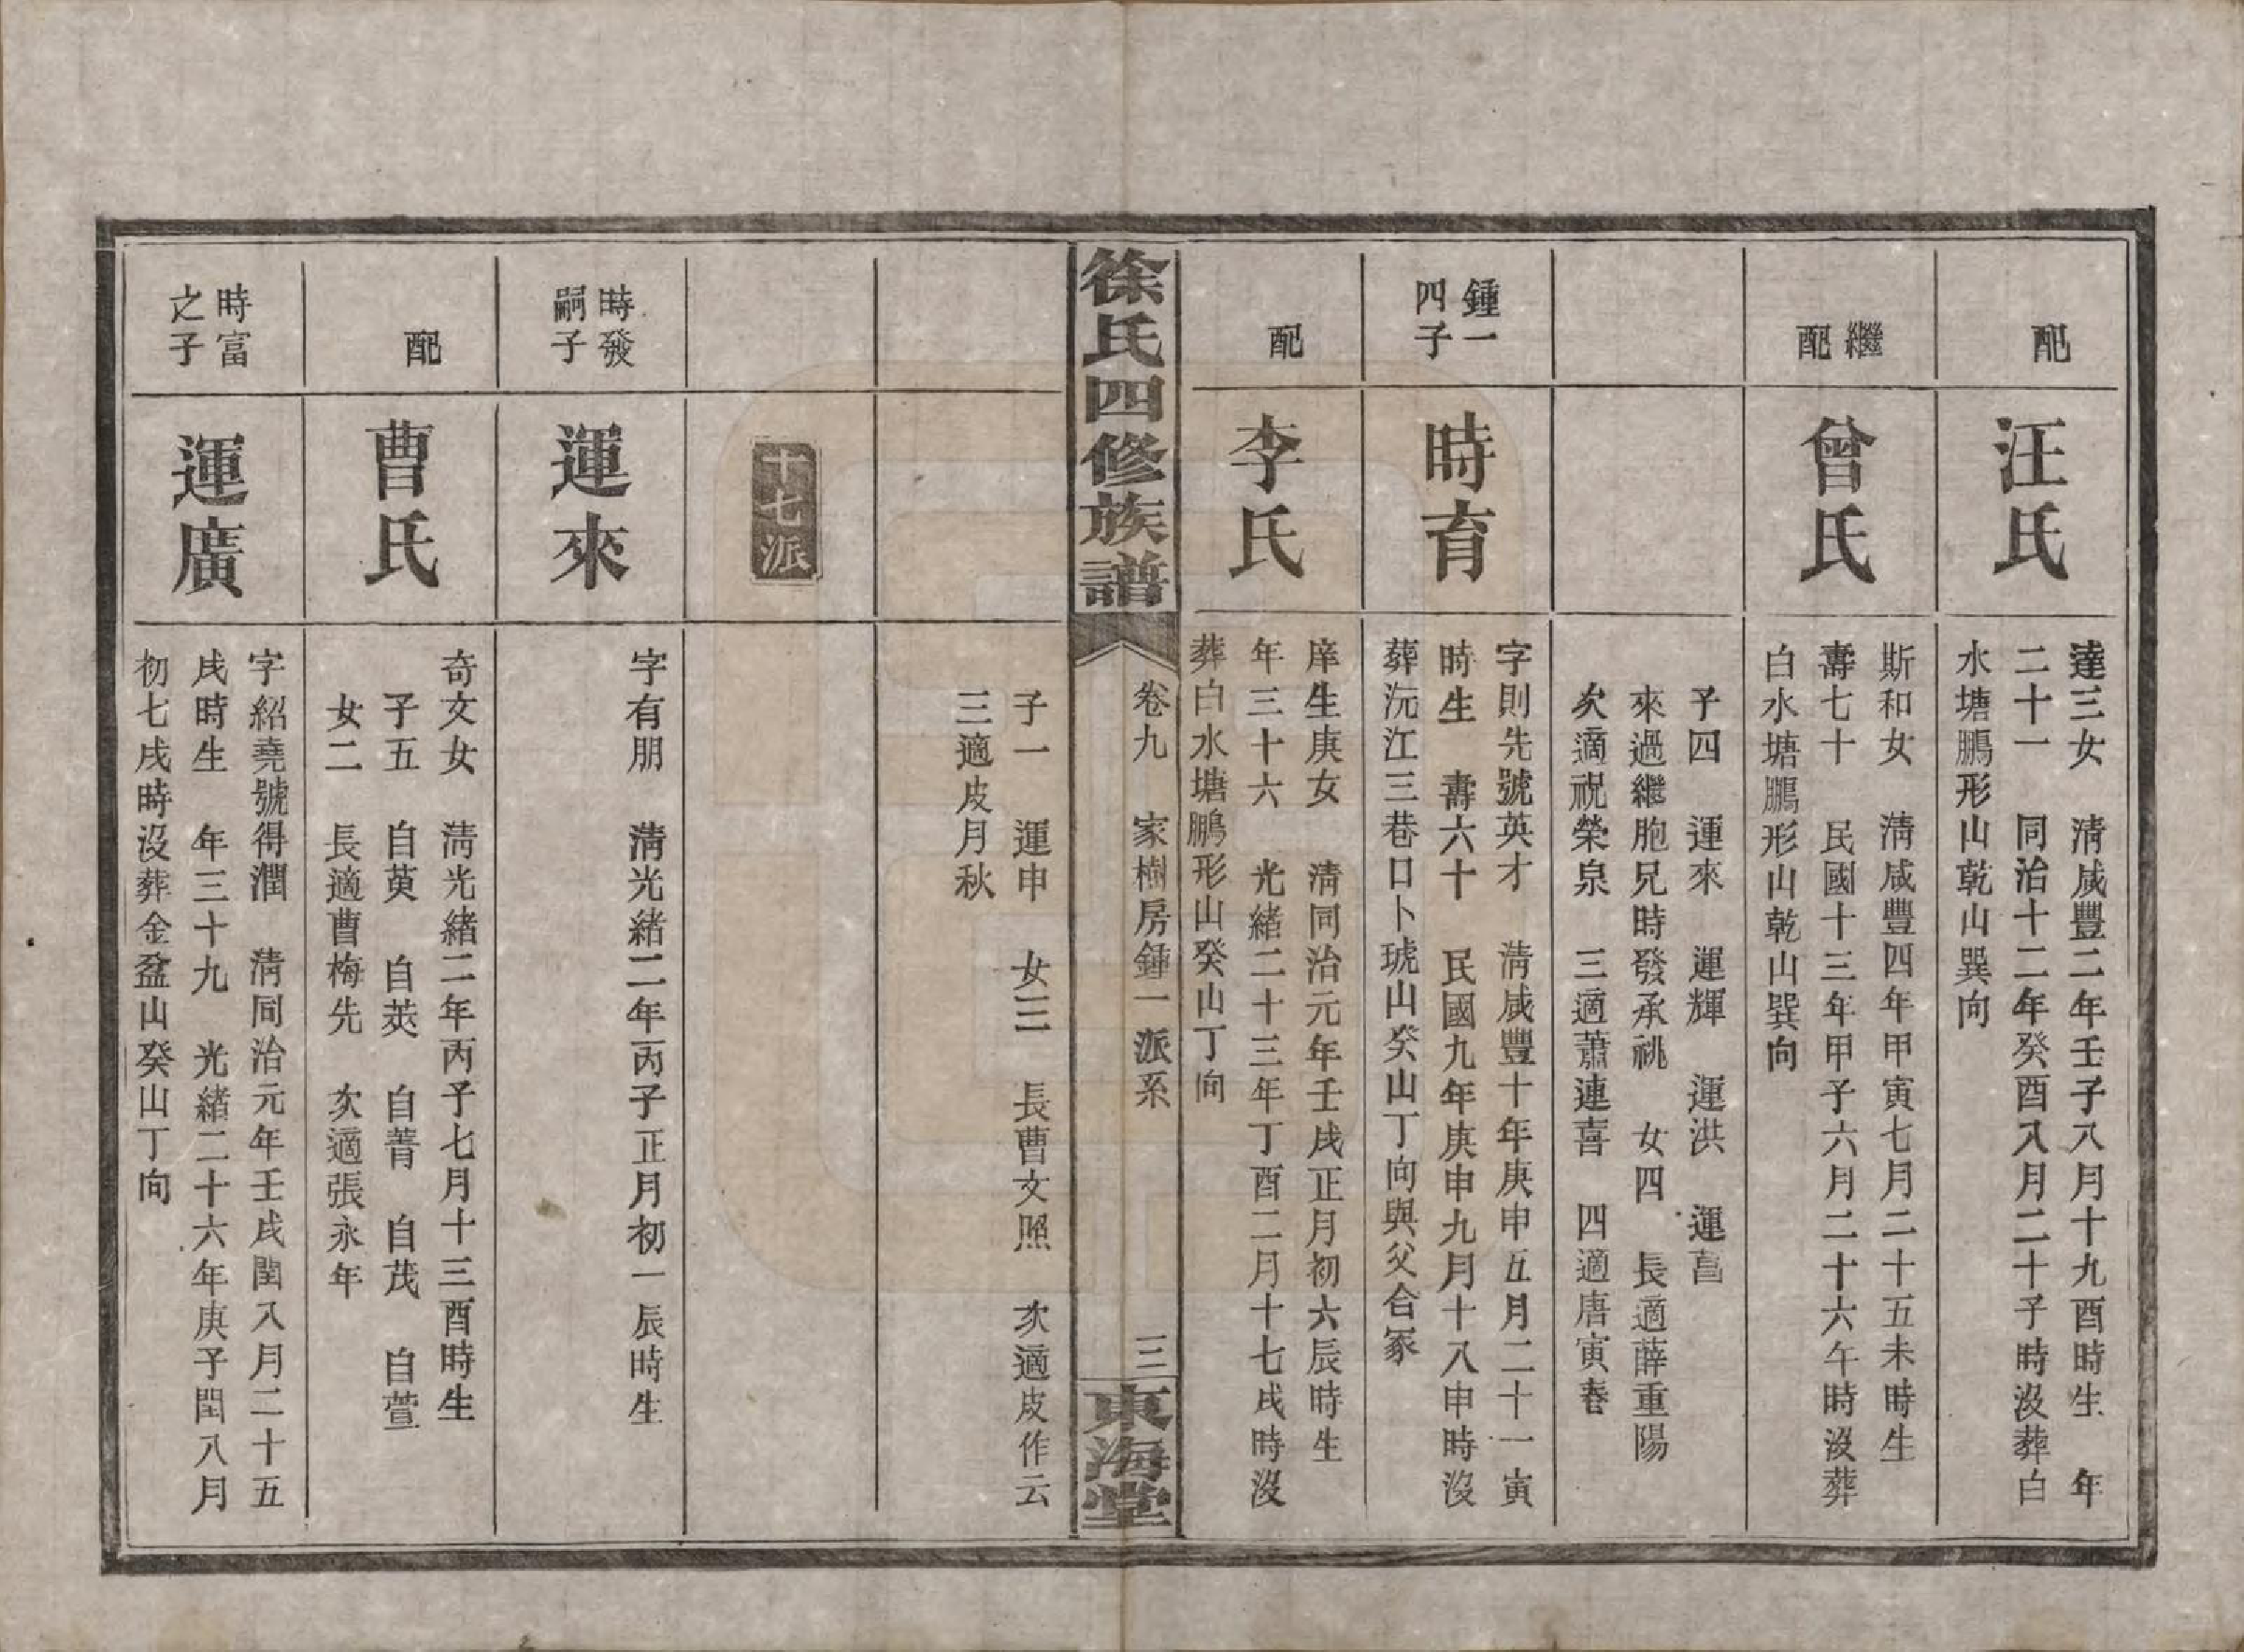 配
汪氏
達三女　清咸豐二年壬子八月十九酉時生　年
二十一　同治十二年癸酉八月二十子時沒葬白
水塘鵬形山乾山巽向
繼
配
曾氏
斯和女　清咸豐四年甲寅七月二十五未時生
壽七十　民國十三年甲子六月二十六午時沒葬
白水塘鵬形山乾山巽向
子四　運來　運輝　運洪　運菖
來過繼胞兄時發承祧　女四　長適薛重陽
次適祝榮泉　三適蕭連喜　四適唐寅春
鍾一
四子
時育
字則先號英才　清咸豐十年庚申五月二十一寅
時生　壽六十　民國九年庚申九月十八申時沒
葬沅江三巷口卜琥山癸山丁向與父合冢
配
李氏
庠生庚女　清同治元年壬戌正月初六辰時生
年三十六　光緒二十三年丁酉二月十七戌時沒
葬白水塘鵬形山癸山丁向
徐氏四修族譜
卷九　家樹房鍾一派系　三
東海堂
子一　運申　女三　長曹文照　次適皮作云
三適皮月秋
十七派
時發
嗣子
運來
字有朋　清光緒二年丙子正月初一辰時生
配
曹氏
奇文女　清光緒二年丙子七月十三酉時生
子五　自萸　自莢　自菁　自茂　自萱
女二　長適曹梅先　次適張永年
時富
之子
運廣
字紹堯號得潤　清同治元年壬戌閏八月二十五
戌時生　年三十九　光緒二十六年庚子閏八月
初七戌時沒葬金盆山癸山丁向